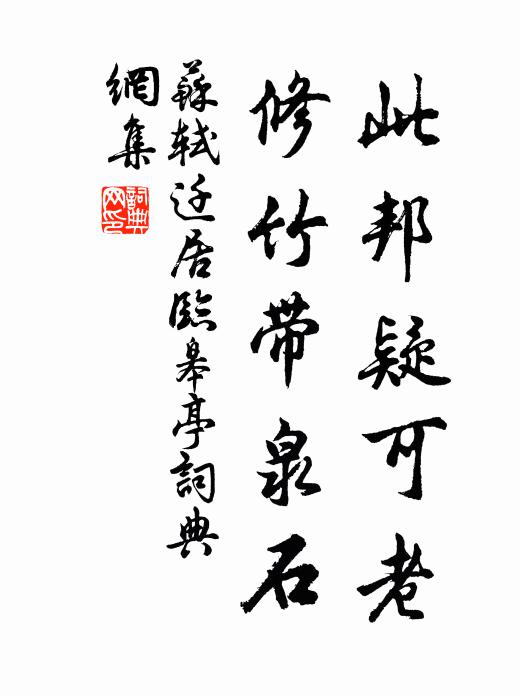 此邦疑可老
修竹带泉石
蘇軾迁居臨皋亭詞典
網集
詞典
网印